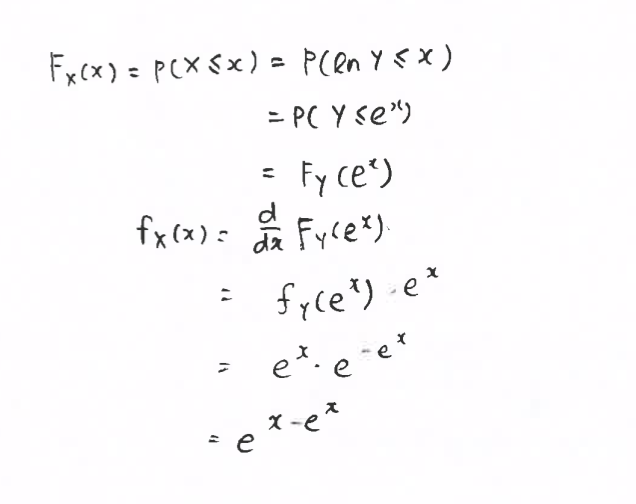 F_X(x) = P(X ≤ x) = P(ln Y ≤ x)
= P(Y ≤ e^x)
= F_Y(e^x)
f_X(x) = d/dx F_Y(e^x).
= f_Y(e^x) · e^x
= e^x · e^{-e^x}
= e^{x-e^x}